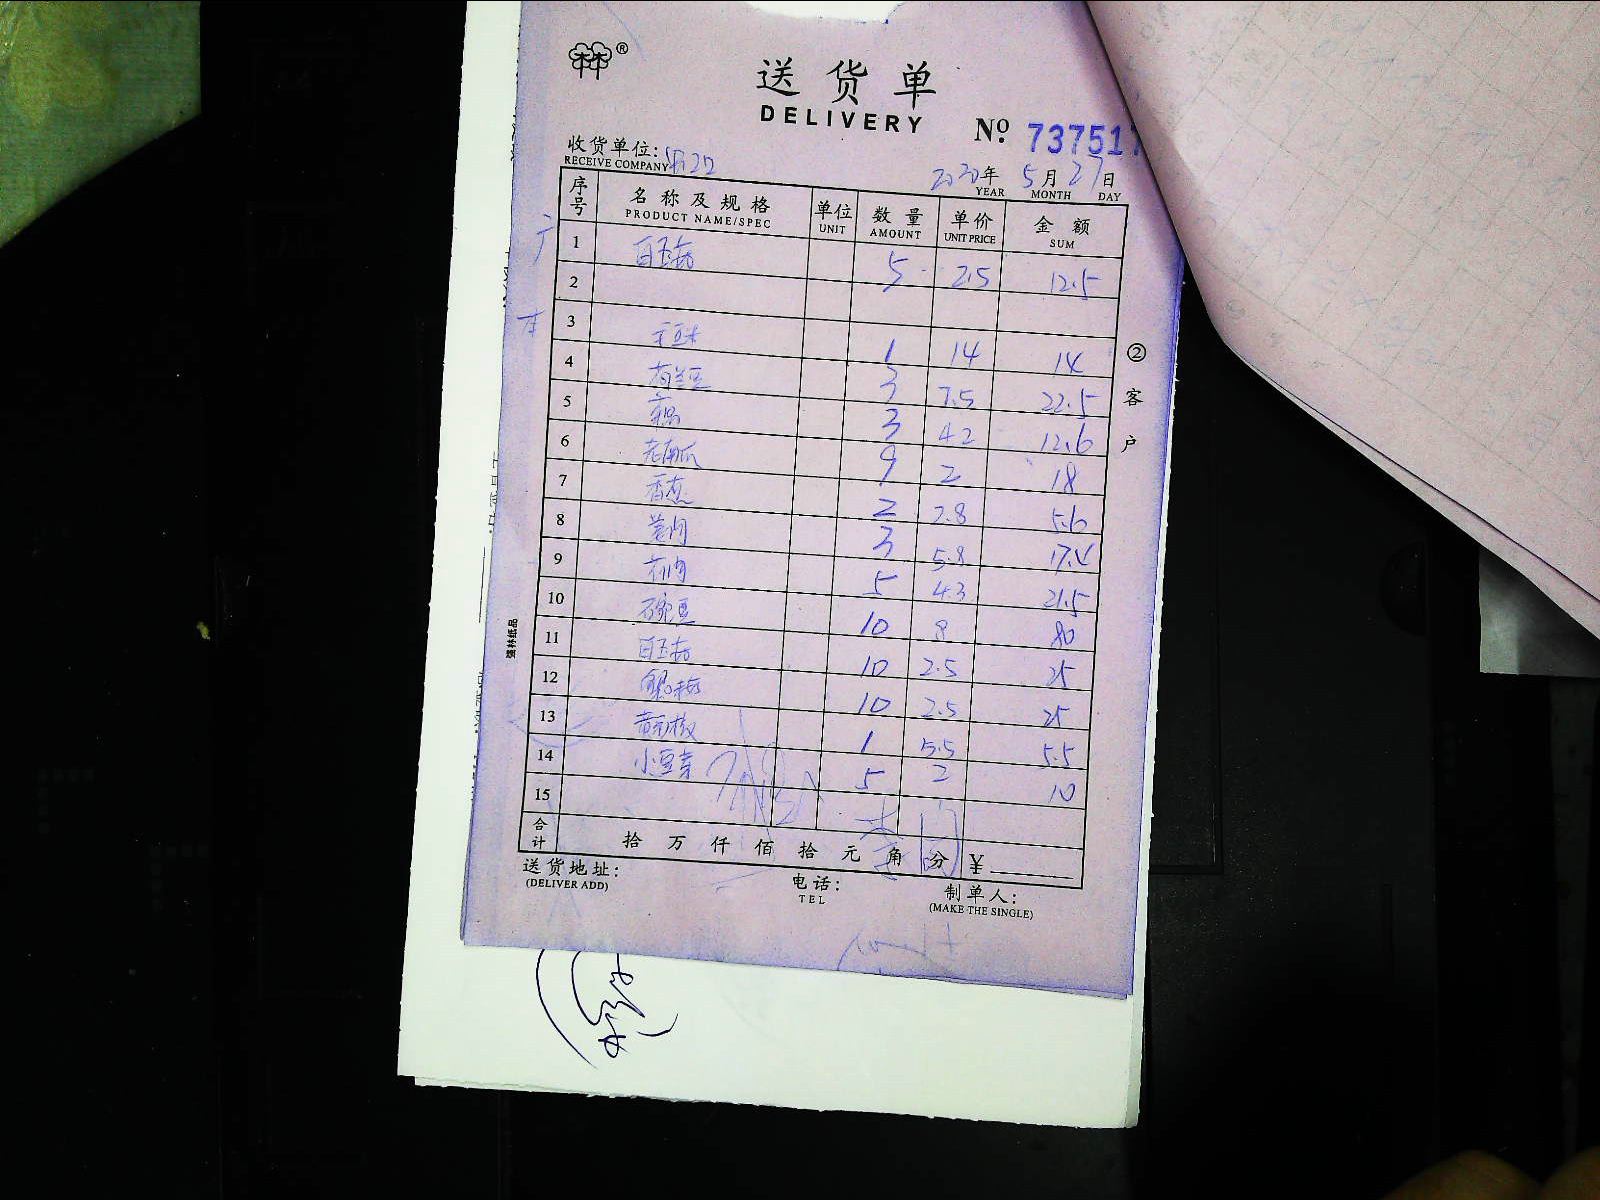 林林®
送货单
DELIVERY
№ 737517
收货单位:
RECEIVE COMPANY
2020年 5月 27日
YEAR MONTH DAY
序号 名称及规格 单位 数量 单价 金额
PRODUCT NAME/SPEC UNIT AMOUNT UNIT PRICE SUM
1 白玉菇 5 2.5 12.5
2
3 毛豆米 1 14 14
4 荷兰豆 3 7.5 22.5
5 3 4.2 12.6
6 老南瓜 9 2 18
7 香葱 2 2.8 5.6
8 3 5.8 17.4
9 5 4.3 21.5
10 豌豆 10 8 80
11 白玉菇 10 2.5 25
12 10 2.5 25
13 黄彩椒 1 5.5 5.5
14 小豆芽 5 2 10
15
合计 拾 万 仟 佰 拾 元 角 分 ¥
送货地址: 电话: 制单人:
(DELIVER ADD) TEL (MAKE THE SINGLE)
②客户
强林纸品